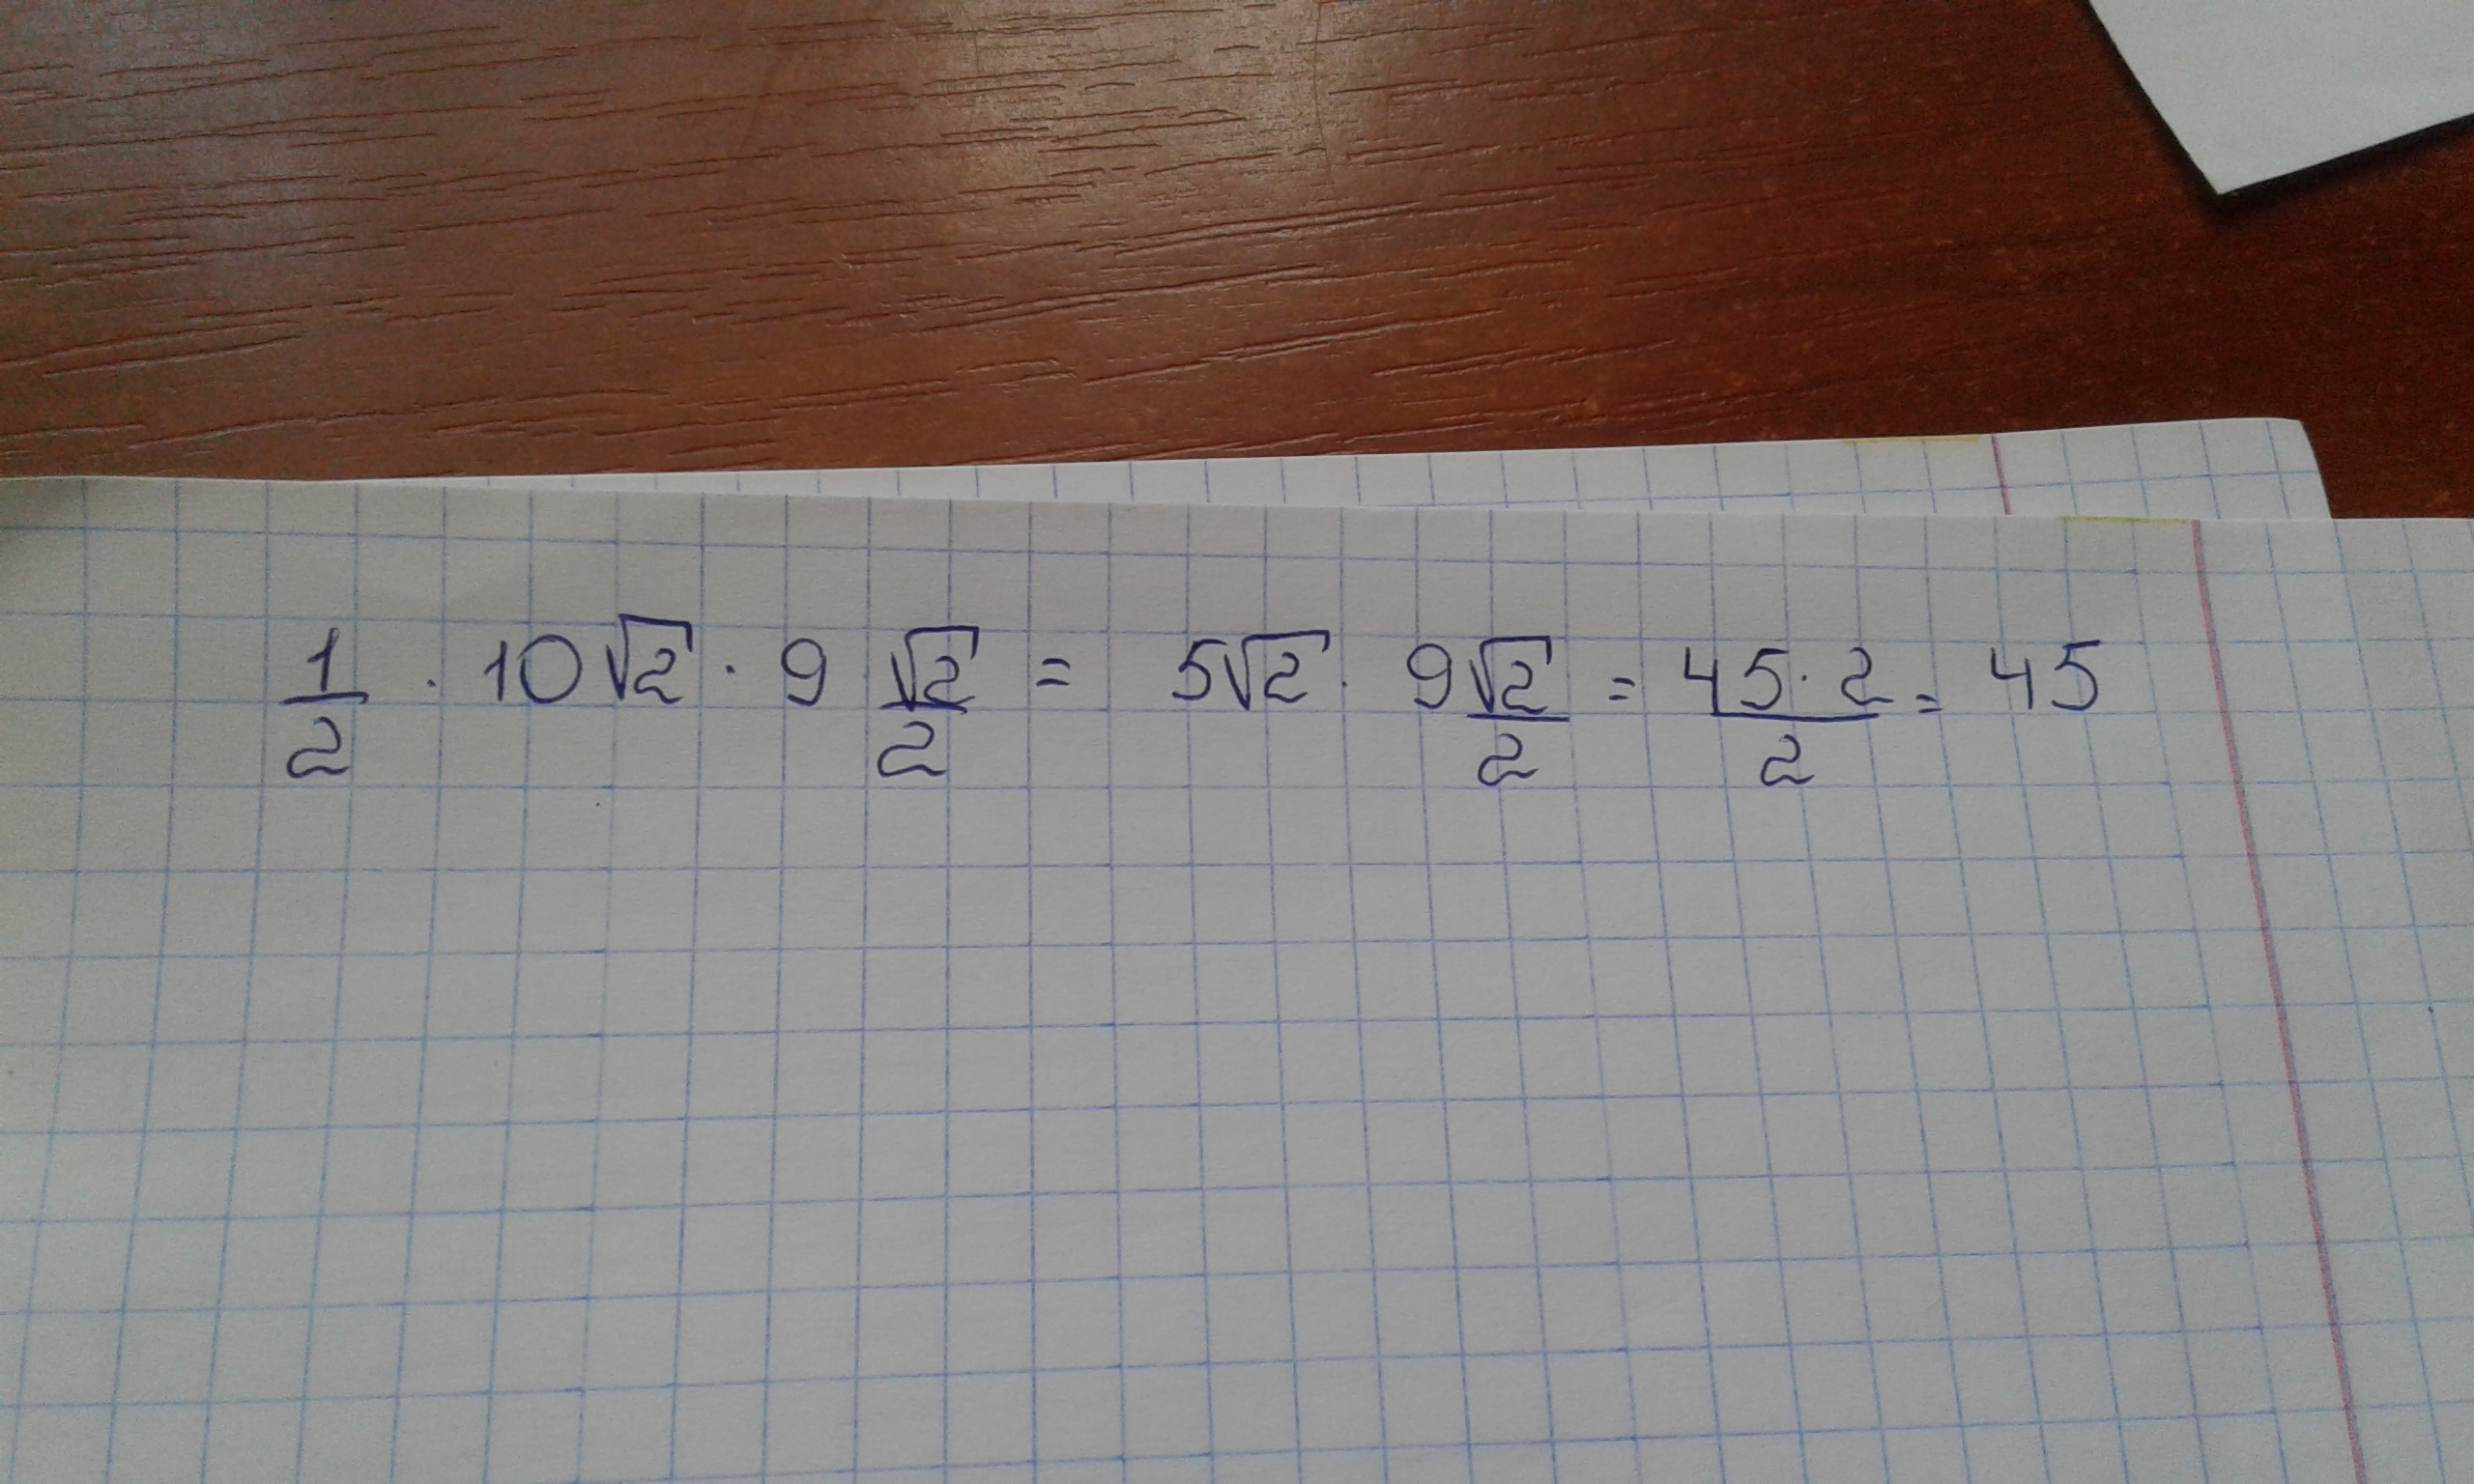 1/2 · 10√2 · 9 √2/2 = 5√2 · 9√2/2 = 45·2/2 = 45